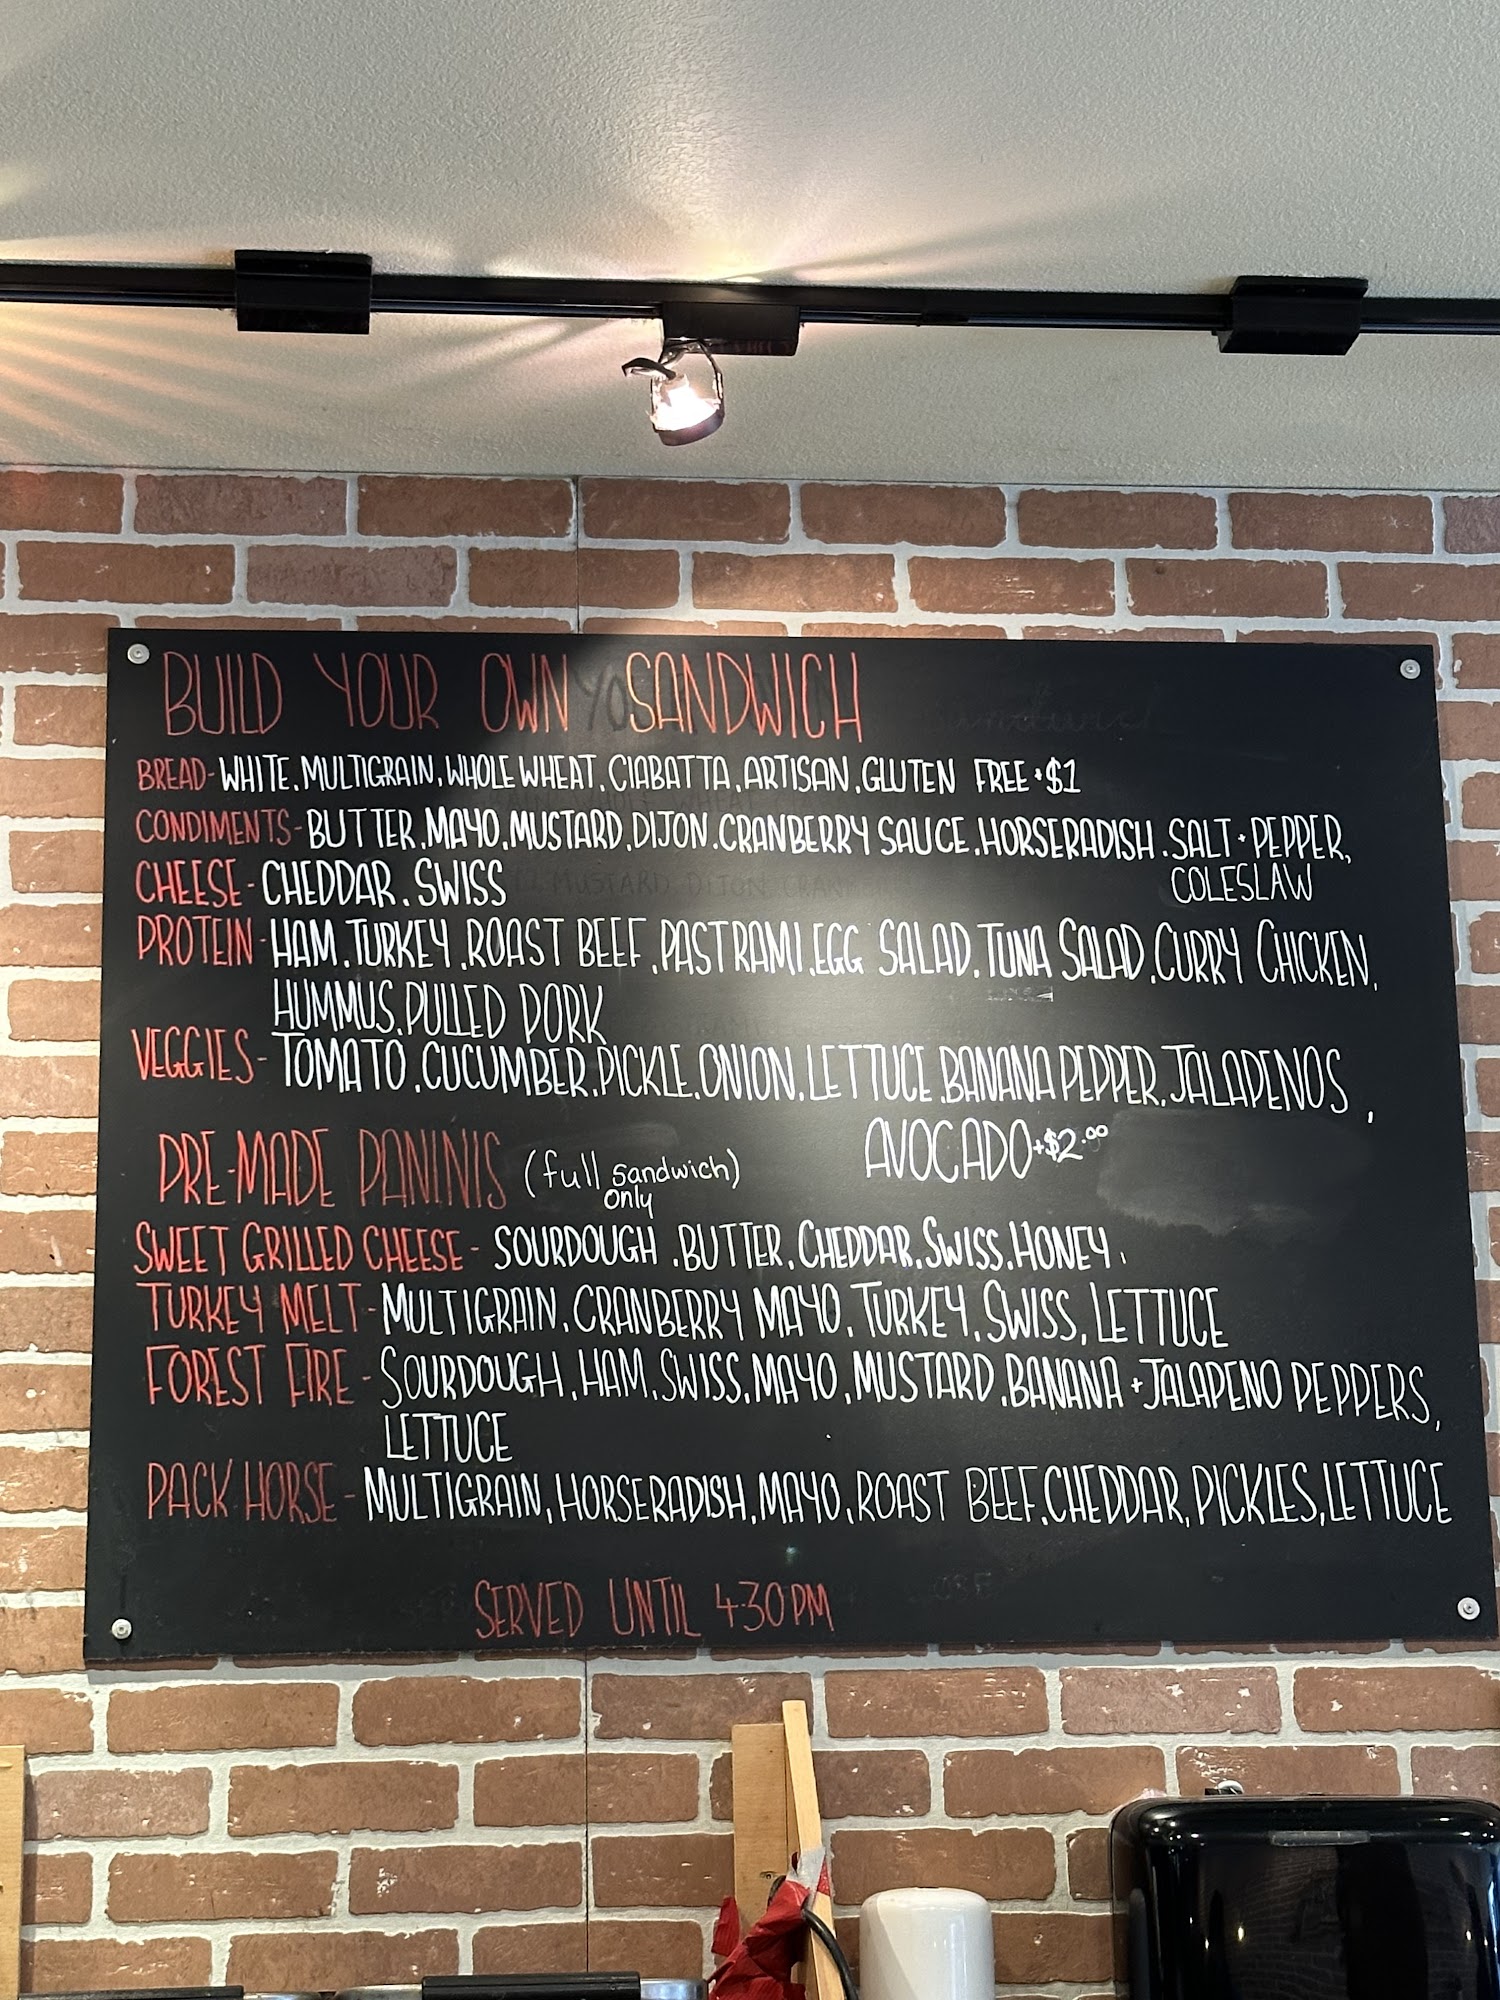 BUILD YOUR OWN SANDWICH
BREAD - WHITE, MULTIGRAIN, WHOLE WHEAT, CIABATTA, ARTISAN, GLUTEN FREE + $1
CONDIMENTS - BUTTER, MAYO, MUSTARD, DIJON, CRANBERRY SAUCE, HORSERADISH, SALT + PEPPER,
COLESLAW
CHEESE - CHEDDAR, SWISS
PROTEIN - HAM, TURKEY, ROAST BEEF, PASTRAMI, EGG SALAD, TUNA SALAD, CURRY CHICKEN,
HUMMUS, PULLED PORK
VEGGIES - TOMATO, CUCUMBER, PICKLE, ONION, LETTUCE, BANANA PEPPER, JALAPENOS,
AVOCADO +$2.00
PRE-MADE PANINIS (full sandwich)
only
SWEET GRILLED CHEESE - SOURDOUGH, BUTTER, CHEDDAR, SWISS, HONEY,
TURKEY MELT - MULTIGRAIN, CRANBERRY MAYO, TURKEY, SWISS, LETTUCE
FOREST FIRE - SOURDOUGH, HAM, SWISS, MAYO, MUSTARD, BANANA + JALAPENO PEPPERS,
LETTUCE
PACK HORSE - MULTIGRAIN, HORSERADISH, MAYO, ROAST BEEF, CHEDDAR, PICKLES, LETTUCE
SERVED UNTIL 4:30 PM